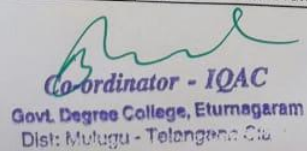 Co-ordinator - IQAC
Govt. Degree College, Eturnagaram
Dist: Mulugu - Telangana